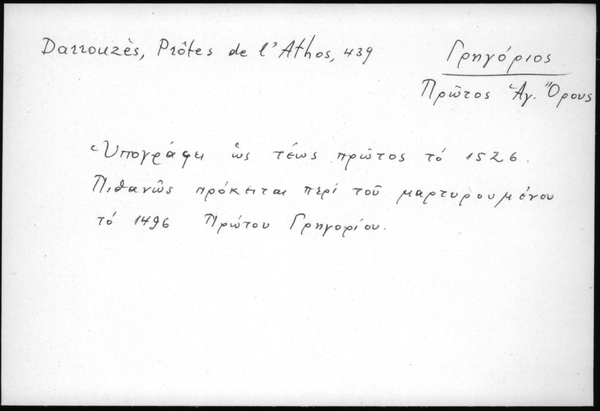 Darrouzès, Prôtes de l'Athos, 439
Γρηγόριος
Πρῶτος Ἁγ. Ὄρους
Ὑπογράφει ὡς τέως πρῶτος τό 1526.
Πιθανῶς πρόκειται περί τοῦ μαρτυρουμένου
τό 1496 Πρώτου Γρηγορίου.